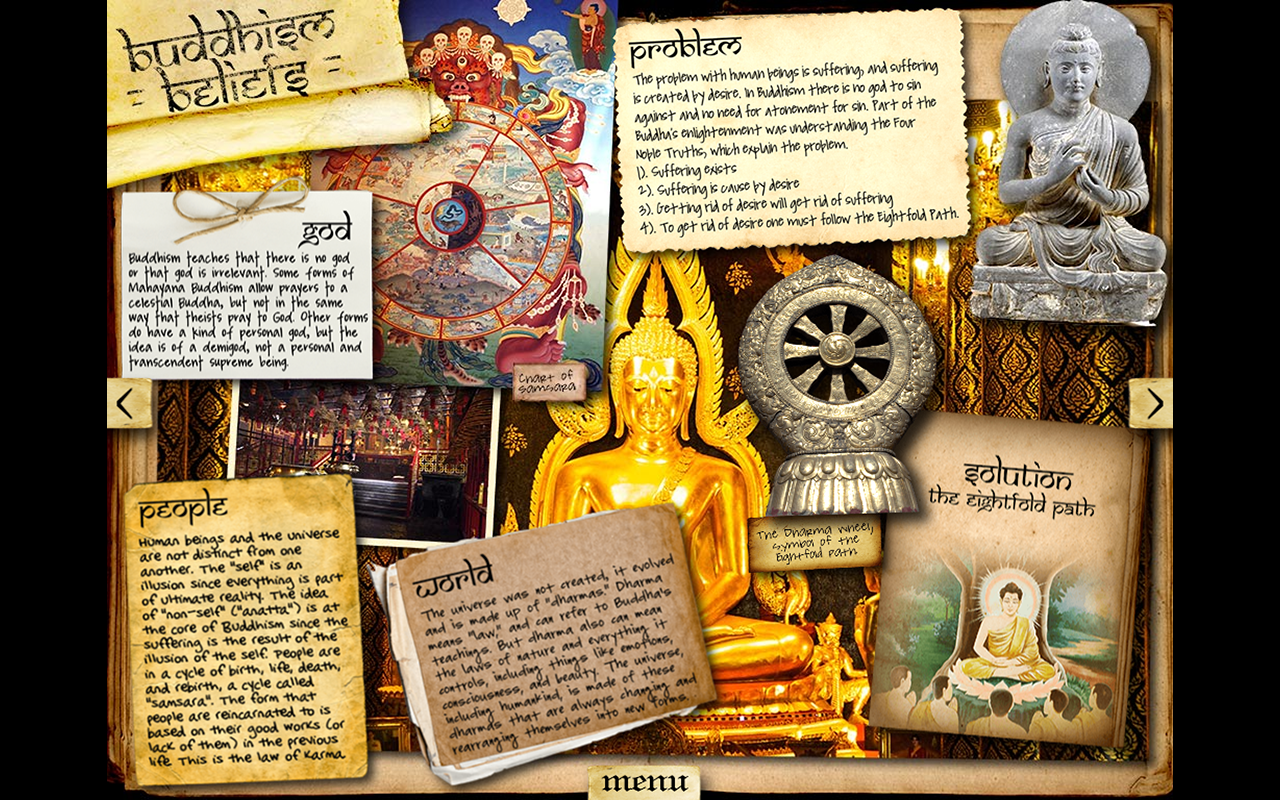 Buddhism
- Beliefs -
Problem
The problem with human beings is suffering, and suffering
is created by desire. In Buddhism there is no god to sin
against and no need for atonement for sin. Part of the
Buddha's enlightenment was understanding the Four
Noble Truths, which explain the problem.
1). Suffering exists
2). Suffering is cause by desire
3). Getting rid of desire will get rid of suffering
4). To get rid of desire one must follow the Eightfold Path.
God
Buddhism teaches that there is no god
or that god is irrelevant. Some forms of
Mahayana Buddhism allow prayers to a
celestial Buddha, but not in the same
way that theists pray to God. Other forms
do have a kind of personal god, but the
idea is of a demigod, not a personal and
transcendent supreme being.
Chart of
Samsara
<
>
People
Human beings and the universe
are not distinct from one
another. The "self" is an
illusion since everything is part
of ultimate reality. The idea
of "non-self" ("anatta") is at
the core of Buddhism since the
suffering is the result of the
illusion of the self. People are
in a cycle of birth, life, death,
and rebirth, a cycle called
"samsara". The form that
people are reincarnated to is
based on their good works (or
lack of them) in the previous
life. This is the law of Karma.
World
The universe was not created, it evolved
and is made up of "dharmas." Dharma
means "law," and can refer to Buddha's
teachings. But dharma also can mean
the laws of nature and everything it
controls, including things like emotions,
consciousness, and beauty. The universe,
including humankind, is made of these
dharmas that are always changing and
rearranging themselves into new forms.
The Dharma Wheel,
symbol of the
Eightfold Path
Solution
the Eightfold Path
menu